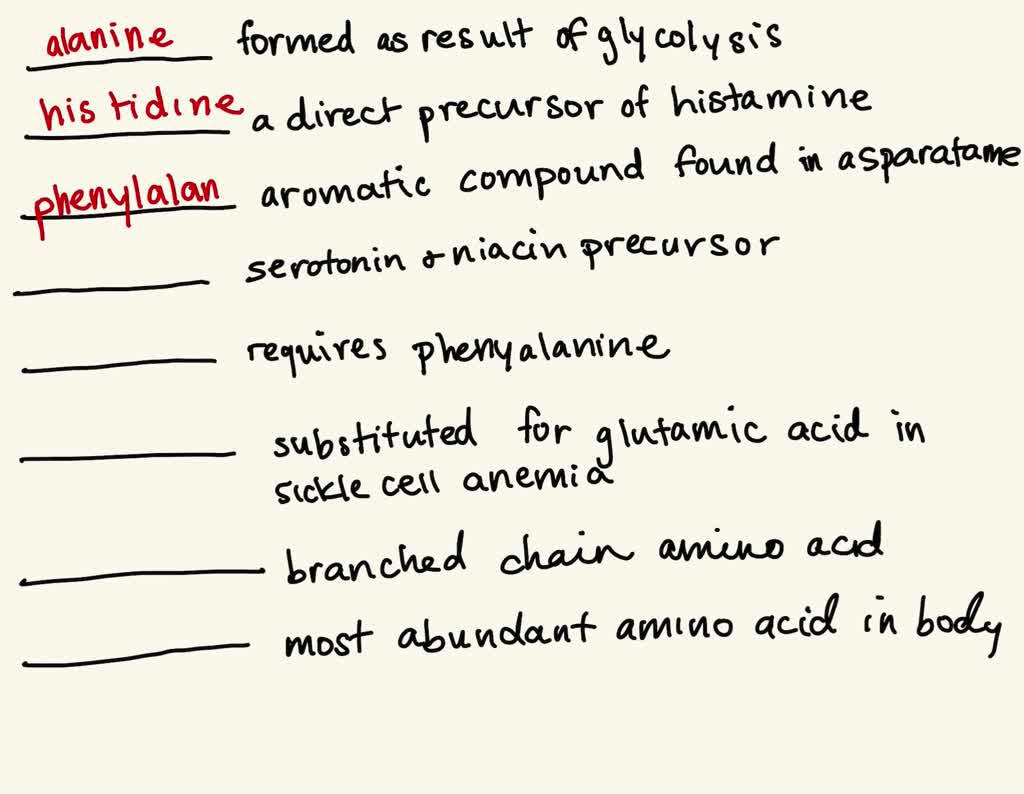 alanine formed as result of glycolysis
histidine a direct precursor of histamine
phenylalan aromatic compound found in asparatame
serotonin & niacin precursor
requires phenyalanine
substituted for glutamic acid in
sickle cell anemia
branched chain amino acid
most abundant amino acid in body